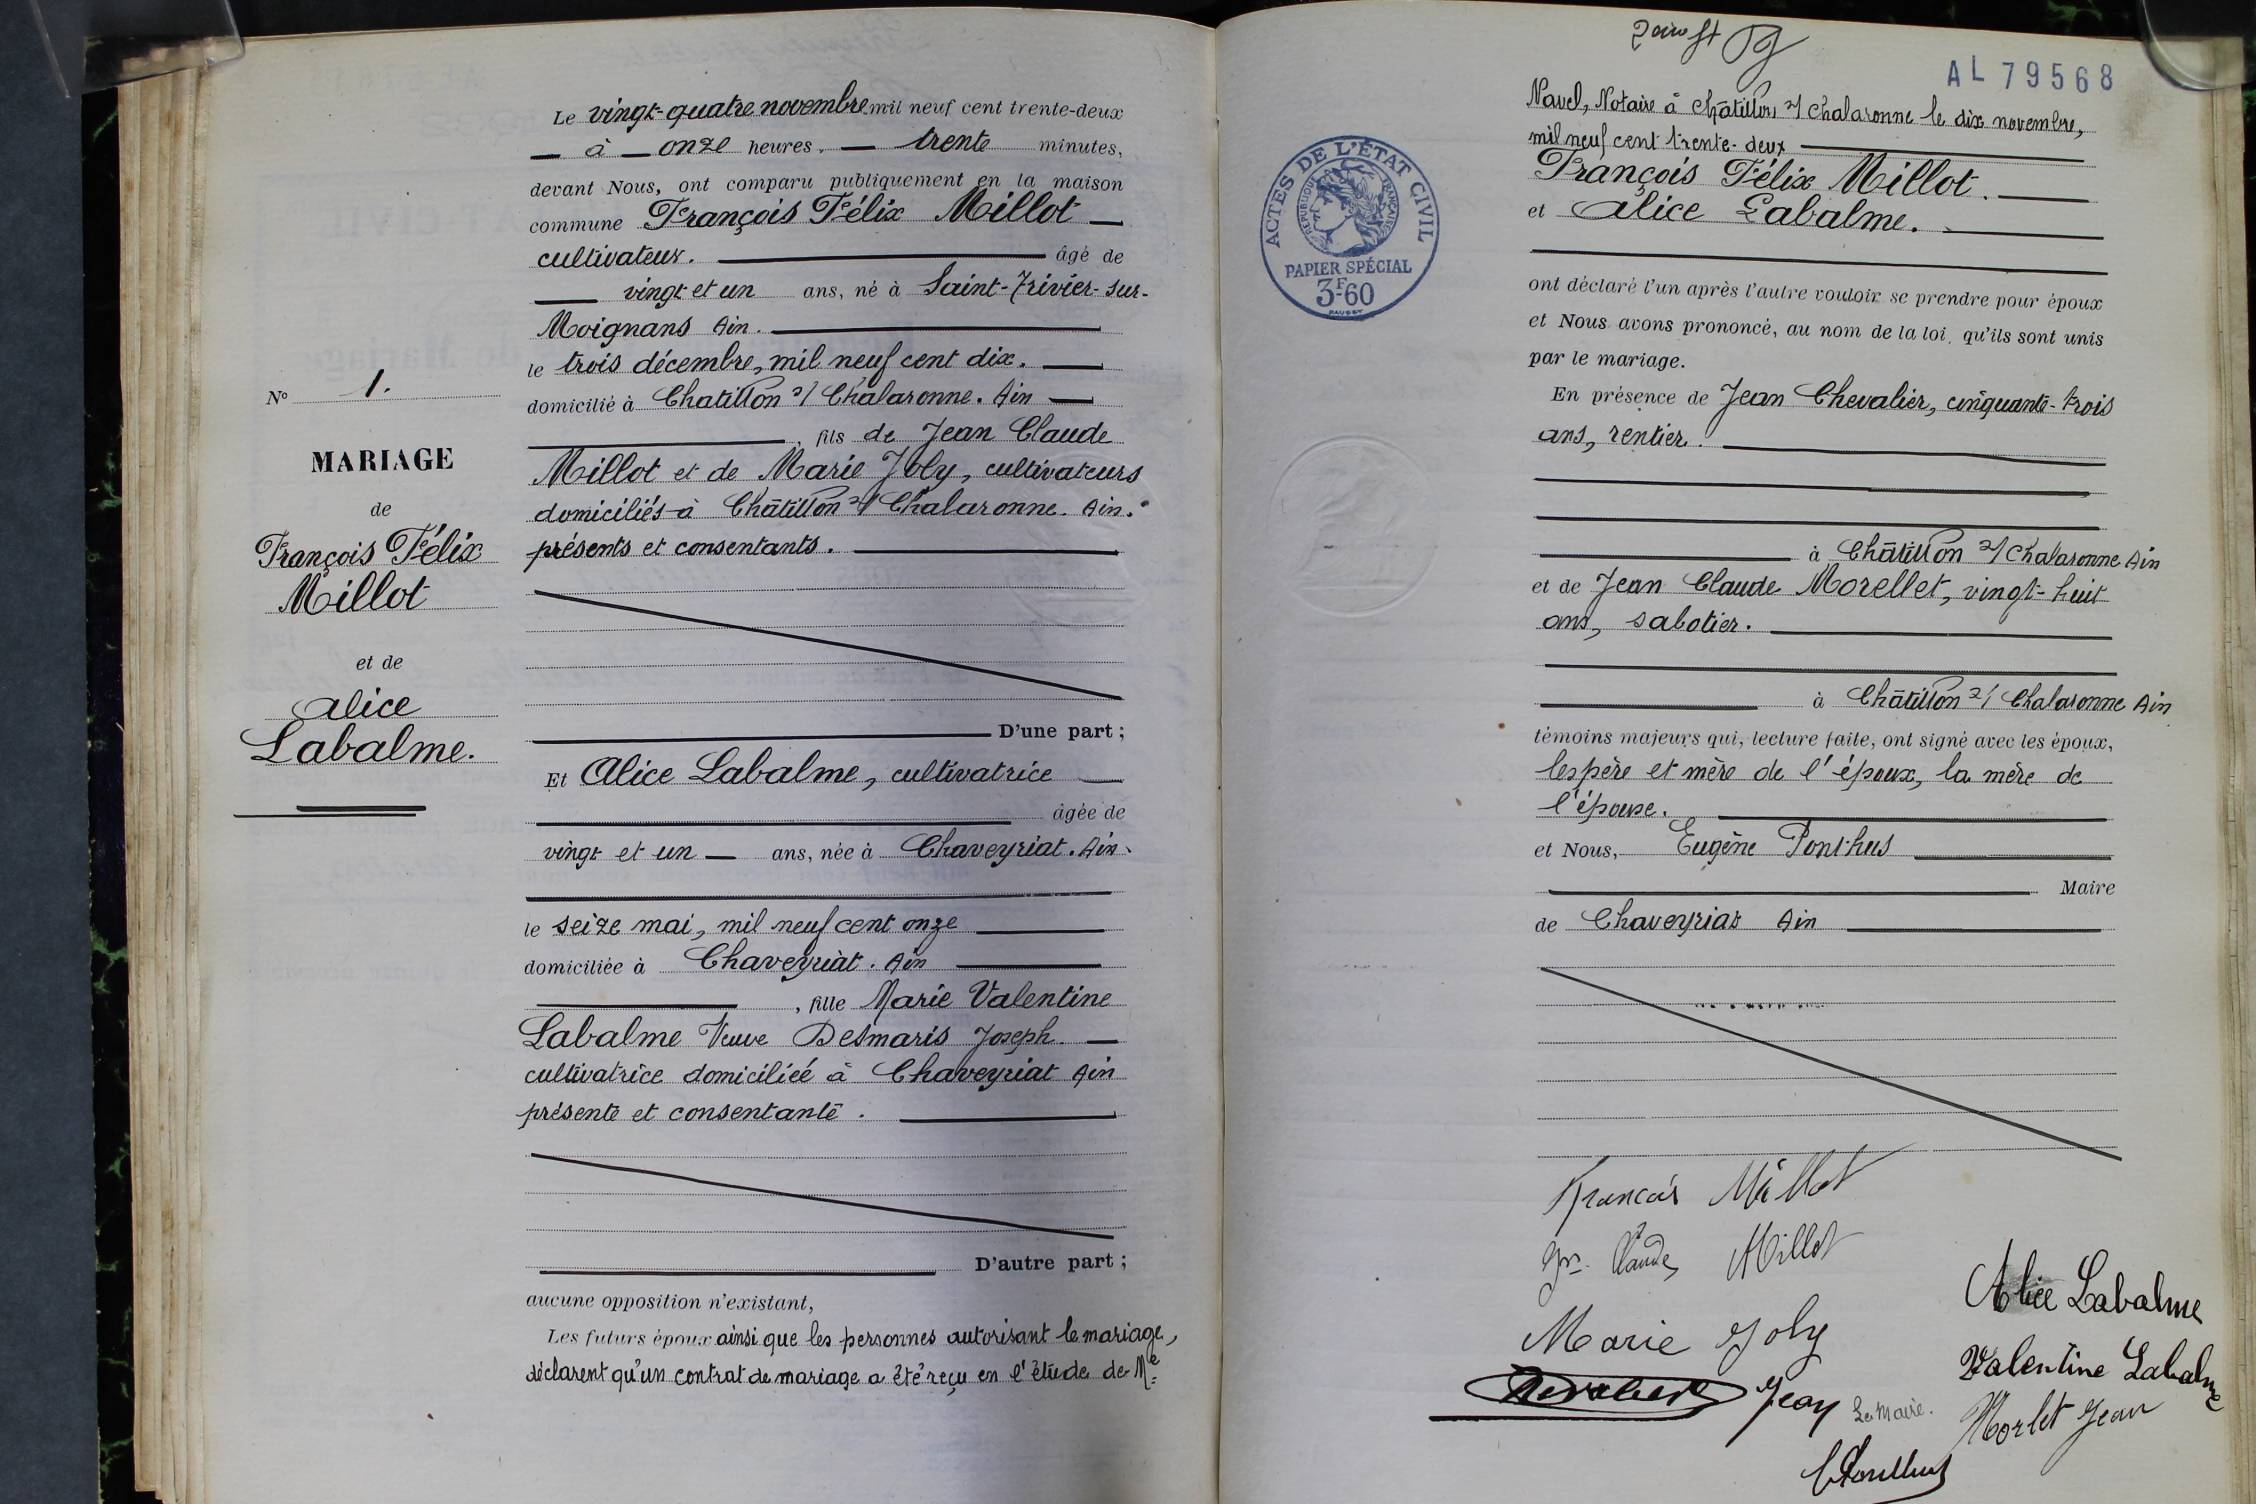 Le vingt-quatre novembre mil neuf cent trente-deux
à onze heures, trente minutes,
devant Nous, ont comparu publiquement en la maison
commune François Félix Millot
cultivateur. âgé de
vingt et un ans, né à Saint-Trivier-sur-
Moignans Ain.
le trois décembre, mil neuf cent dix.
domicilié à Chatillon s/ Chalaronne. Ain
, fils de Jean Claude
Millot et de Marie Joly, cultivateurs
domiciliés à Châtillon s/ Chalaronne. Ain.
présents et consentants.
D'une part ;
Et Alice Labalme, cultivatrice
âgée de
vingt et un ans, née à Chaveyriat. Ain.
le seize mai, mil neuf cent onze
domiciliée à Chaveyriat. Ain
, fille Marie Valentine
Labalme Veuve Desmaris Joseph
cultivatrice domiciliée à Chaveyriat Ain
présente et consentante.
D'autre part ;
aucune opposition n'existant,
Les futurs époux ainsi que les personnes autorisant le mariage,
déclarent qu'un contrat de mariage a été reçu en l'étude de Me
No 1.
MARIAGE
de
François Félix
Millot
et de
Alice
Labalme.
AL 79568
Navel, Notaire à Châtillon s/ Chalaronne le dix novembre,
mil neuf cent trente-deux
François Félix Millot.
et Alice Labalme.
ont déclaré l'un après l'autre vouloir se prendre pour époux
et Nous avons prononcé, au nom de la loi, qu'ils sont unis
par le mariage.
En présence de Jean Chevalier, cinquante-trois
ans, rentier.
à Châtillon s/ Chalaronne Ain
et de Jean Claude Morellet, vingt-huit
ans, sabotier.
à Châtillon s/ Chalaronne Ain
témoins majeurs qui, lecture faite, ont signé avec les époux,
les père et mère de l'époux, la mère de
l'épouse.
et Nous, Eugène Ponthus
Maire
de Chaveyriat Ain
ACTES DE L'ÉTAT CIVIL
RÉPUBLIQUE FRANÇAISE
PAPIER SPÉCIAL
3F60
François Millot
Claude Millot
Marie Joly
Jean
Le Maire.
Alice Labalme
Valentine Labalme
Morlet Jean